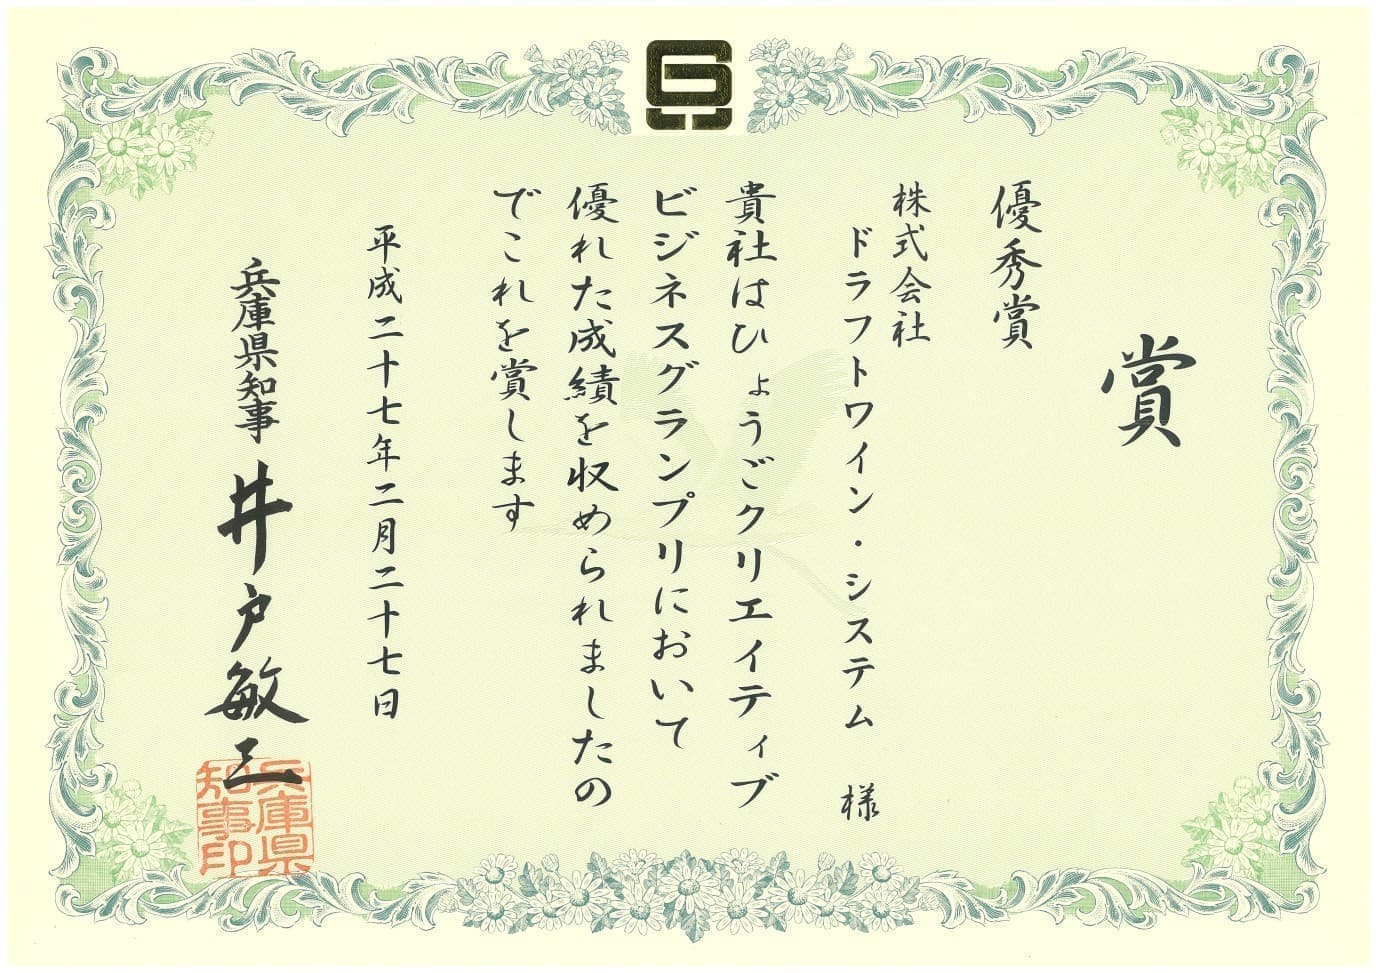 賞
優秀賞
株式会社
ドラフトワイン・システム 様
貴社はひょうごクリエイティブ
ビジネスグランプリにおいて
優れた成績を収められましたの
でこれを賞します
平成二十七年二月二十七日
兵庫県知事 井戸敏三
兵庫県
知事印